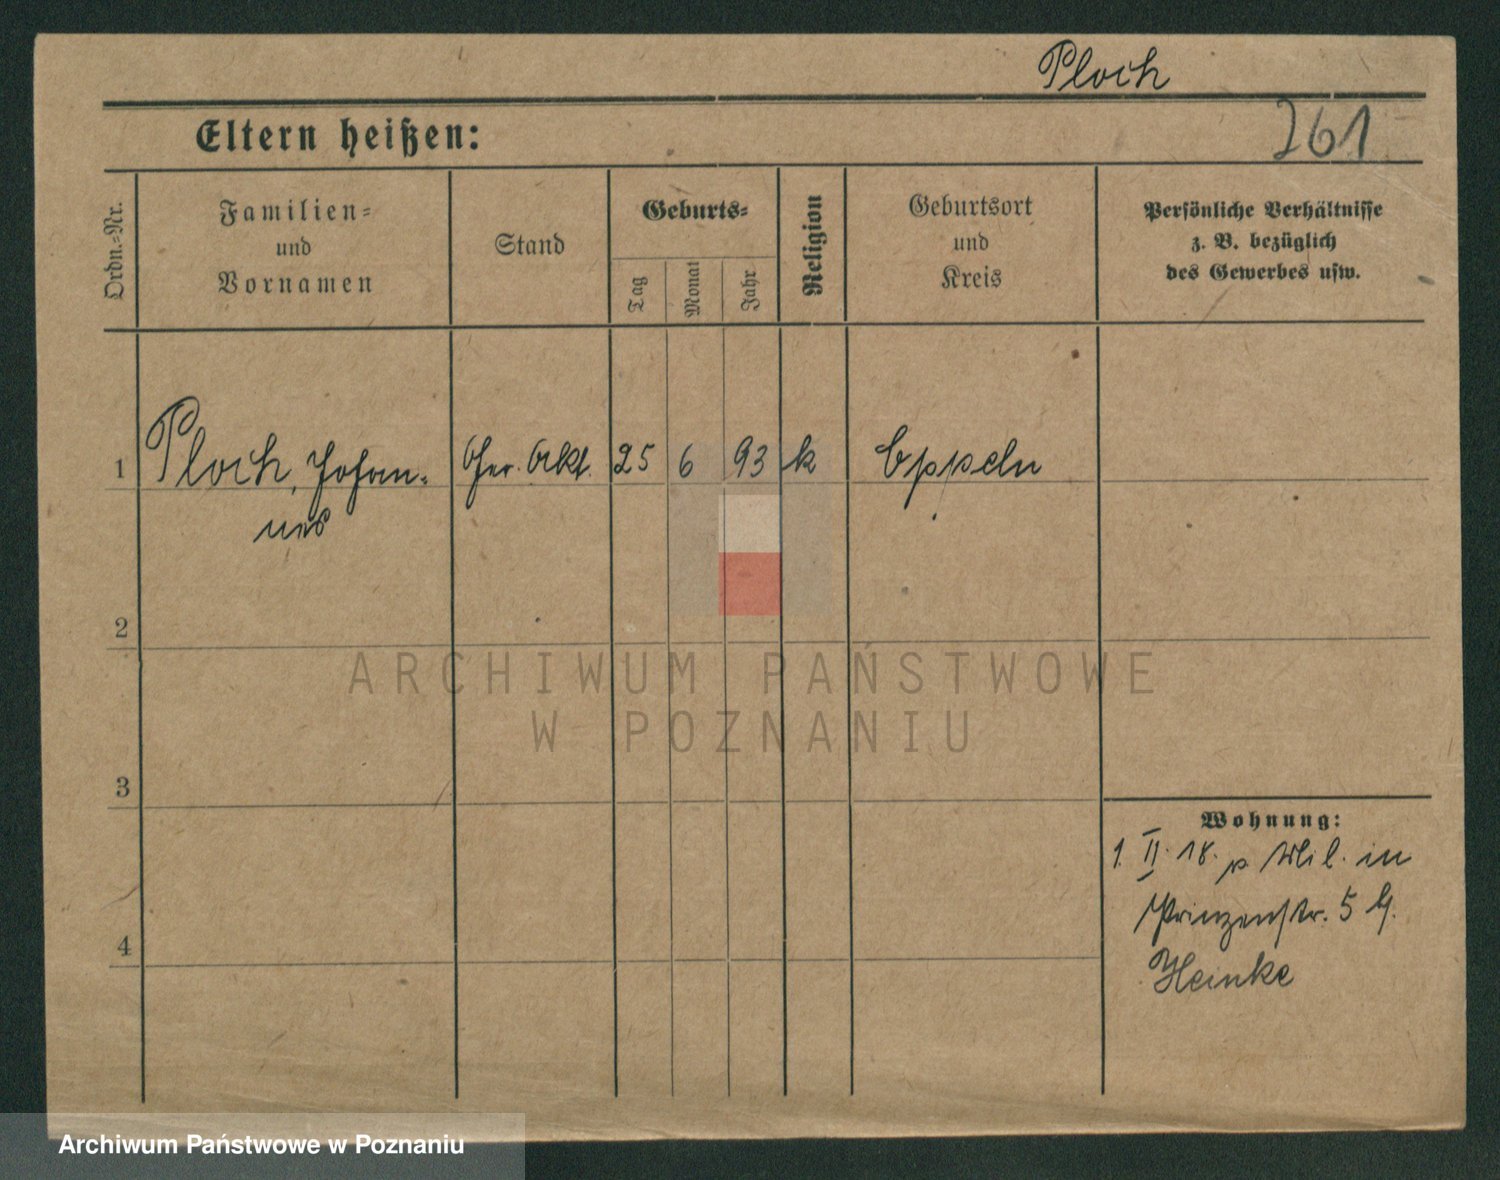 Ploch
Eltern heißen:
261
Ordn.=Nr.
Familien=
und
Vornamen
Stand
Geburts=
Tag
Monat
Jahr
Religion
Geburtsort
und
Kreis
Persönliche Verhältnisse
z. B. bezüglich
des Gewerbes usw.
1
Ploch, Johan-
nes
Ger. Akt.
25
6
93
k
Oppeln
2
3
4
Wohnung:
1. II. 18. v. Mil. in
Prinzenstr. 5 b.
Heinke
ARCHIWUM PAŃSTWOWE
W POZNANIU
Archiwum Państwowe w Poznaniu